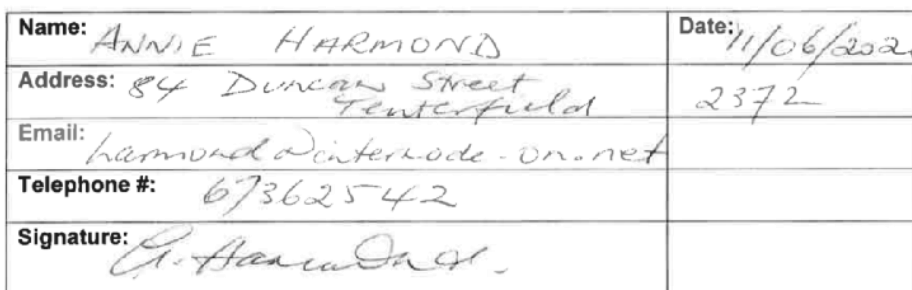 Name: ANNIE HARMOND Date: 11/06/202
Address: 84 Duncan Street
Tenterfield 2372
Email: harmond@internode.on.net
Telephone #: 67362542
Signature: A. Harmond.